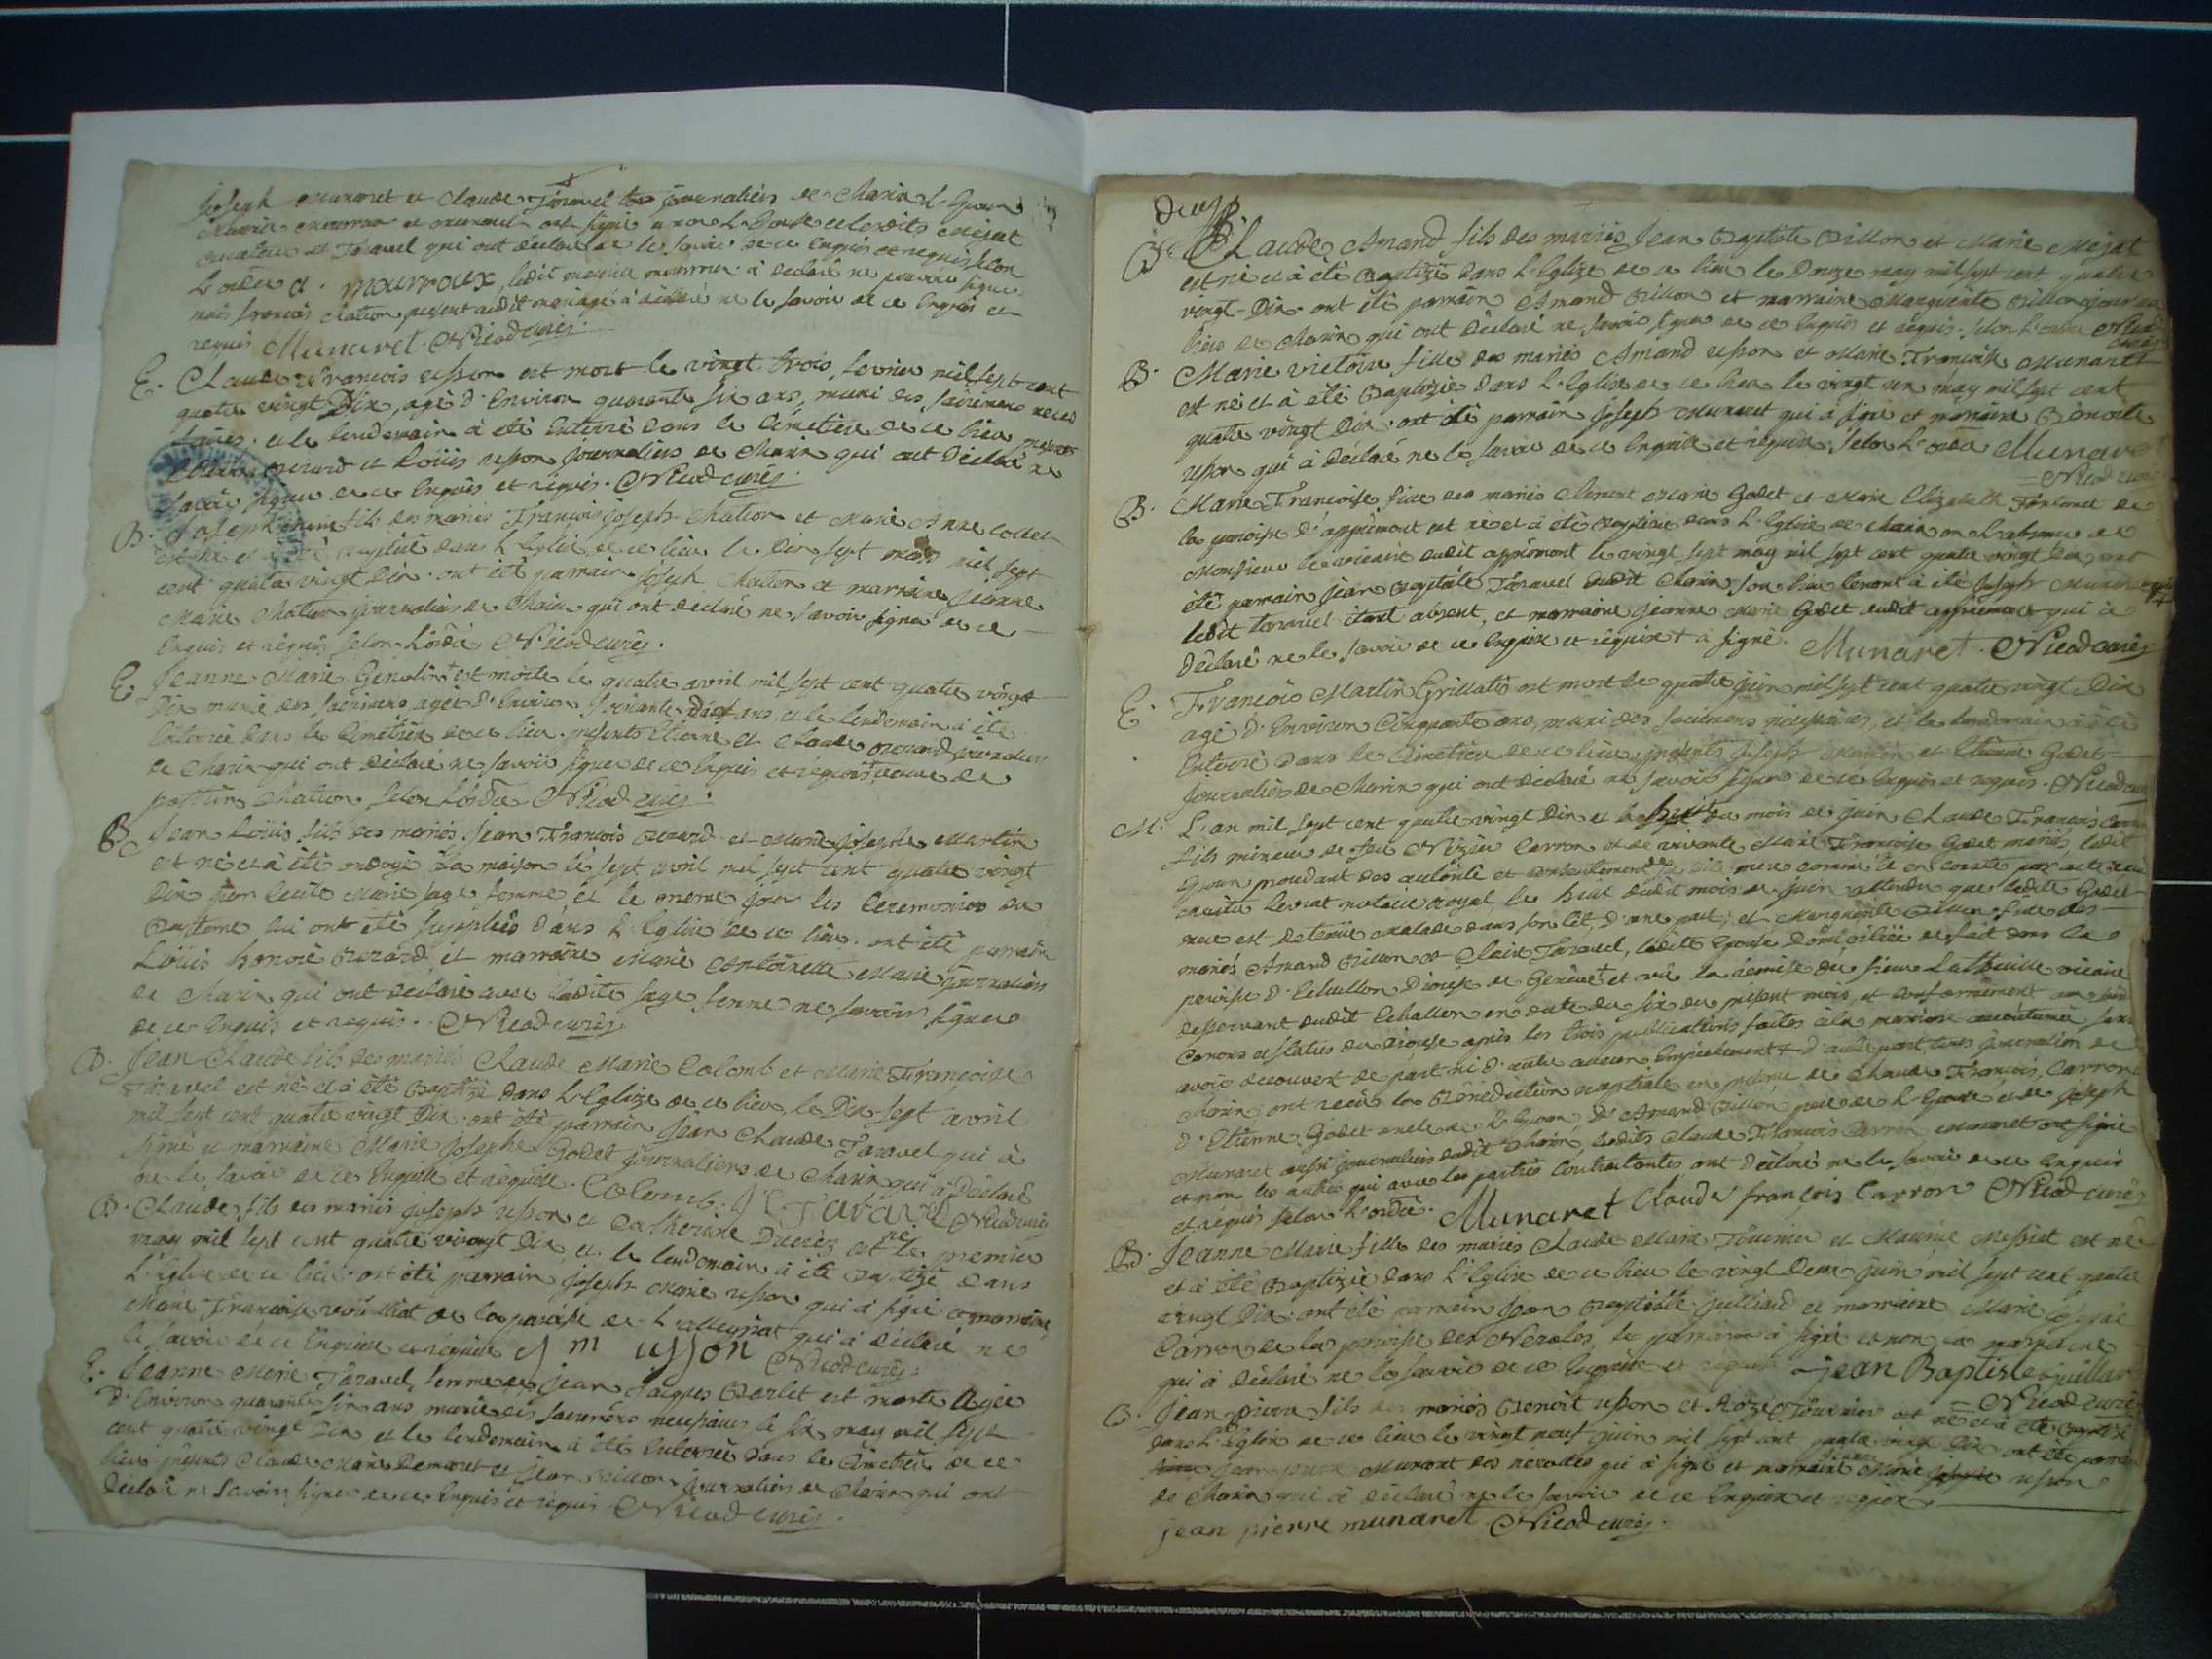 Joseph Munaret et Claude Taravel journaliers de Charix L'Epoux
ont signé et non L'Epouse et lesdits Mejat
et Taravel qui ont declaré ne le savoir de ce Enquis et requis selon
L'ordre Mourroux, ledit à declaré ne pouvoir signer
mais François Chatton present audit mariage à déclaré ne le savoir de ce Enquis et
requis Munaret. Nicod curé.
E. Claude François usson est mort le vingt trois fevrier mil sept cent
quatre vingt Dix, agé d'Environ quarante six ans, muni des sacremens neces
saires. et le lendemain à été Enterré dans le Cimetiere de ce lieu presents
Berard et Loüis usson journaliers de Charix qui ont Declaré ne
savoir signer de ce Enquis et requis. Nicod curé.
B. Joseph fils des mariés François joseph Chatton et Marie Anne Collet
est né et à été baptisé dans L'Eglise de ce lieu le Dix sept mars mil sept
cent quatre vingt Dix. ont été parrain Joseph Chatton et marraine Jeanne
Marie Chatton journaliers de Charix qui ont declaré ne savoir signer de ce
Enquis et requis selon L'ordre Nicod curé.
E. Jeanne Marie Genolin est morte le quatre avril mil sept cent quatre vingt
Dix munie des sacremens agée d'Environ soixante ans, et le lendemain à été
Enterrée dans le Cimetiere de ce lieu. presents Etienne et Claude Berard journaliers
de Charix qui ont declaré ne savoir signer de ce Enquis et requis veuve de
Chatton selon L'ordre Nicod curé.
B. Jean Loüis fils des mariés Jean François Berard et Marie Josephe Martin
est né et à été ondoyé à la maison le sept avril mil sept cent quatre vingt
Dix par Cecile Marie sage femme, et le meme jour les Ceremonies du
Batteme lui ont été supplées dans L'Eglise de ce lieu. ont été parrain
Loüis honoré Berard et marraine Marie Antoinette Marie journaliers
de Charix qui ont declaré avec ladite sage femme ne savoir signer
de ce Enquis et requis. Nicod curé.
B. Jean Claude fils des mariés Claude Marie Colomb et Marie Françoise
Taravel est né et à été Baptizé dans L'Eglize de ce lieu, le Dix-sept avril
mil sept cent quatre vingt Dix. ont été parrain Jean Claude Taravel qui à
signé et marraine Marie Josephe Godet journaliers de Charix qui à Declaré
ne le savoir de ce Enquise et requise. Colomb. J C Taravel Nicod curé
B. Claude fils des mariés joseph usson et Catherine Ducrez est né le premier
may mil sept cent quatre vingt Dix et le lendemain à été Baptizé dans
L'Eglise de ce lieu. ont été parrain joseph Marie usson qui à signé et marraine
Marie Françoise de la paroisse de Lalleyriat qui à déclaré ne
le savoir de ce Enquise et requise J m usson Nicod curé.
E. Jeanne Marie Taravel, femme de Jean Jacques Berlet est morte agée
d'Environ quarante six ans munie des sacremens necessaires le six may mil sept
cent quatre vingt Dix et le lendemain à été Enterrée dans le Cimetiere de ce
lieu. presents Claude Marie et Jean Billon journaliers de Charix qui ont
declaré ne savoir signer de ce Enquis et requis Nicod curé.
B. Claude Amand fils des mariés Jean Baptiste Billon et Marie Mejat
est né et à été Baptizé dans L'Eglize de ce lieu le Douze may mil sept cent quatre
vingt-Dix. ont été parrain Amand Billon et marraine Marguerite Billon journa
liers de Charix qui ont declaré ne savoir signer de ce Enquis et requis. selon L'ordre Nicod
curé
B. Marie victoire fille des mariés Amand usson et Marie Françoise Munaret
est né et à été Baptizée dans L'Eglise de ce lieu le vingt un may mil sept cent
quatre vingt Dix. ont été parrain Joseph Munaret qui à signé et marraine Benoite
usson qui à déclaré ne le savoir de ce Enquise et requise selon L'ordre Munaret
Nicod curé
B. Marie Françoise fille des mariés Clement Marie Godet et Marie Elizabeth de
la paroisse d'appremont est né et à été Baptisée dans L'Eglise de Charix en L'absence de
Monsieur le vicaire dudit appremont le vingt sept may mil sept cent quatre vingt Dix, ont
été parrain Jean Baptiste Taravel dudit Charix son lieu tenant à été Joseph Munaret
ledit taravel étant absent, et marraine Jeanne Marie Godet dudit appremont qui à
déclaré ne le savoir de ce Enquise et requise + a signé. Munaret. Nicod curé
E. François Martin Grillatis est mort le quatre juin mil sept cent quatre vingt Dix
agé d'Environ Cinquante ans, muni des sacremens nécessaires, et le lendemain à été
Enterré dans le Cimetiere de ce lieu, presents Joseph et Etienne Godet
Journaliers de Charix qui ont déclaré ne savoir signer de ce Enquis et requis. Nicod curé
M. L'an mil sept cent quatre vingt Dix et le huit du mois de juin, Claude François Carron
fils mineur de feu Nizier Carron et de vivante Marie Françoise Godet mariés, ledit
Epoux procedant des autorité et consentement de sa dite mere comme il en conste par acte reçu
maitre notaire Royal, le huit dudit mois de juin attendu que ladite Godet
mere est detenüe malade dans son lit, d'une part, et Marguerite Billon fille des
mariés Amand Billon et Claire Taravel, ladite Epouse domiciliée de fait dans la
paroisse d'Echallon Diocese de Genêve et vû la remise du sieur vicaire
desservant dudit Echallon en date du six du présent mois, et conformément aux saints
Canons et statuts du diocese après les trois publications faites à la maniere accoutumée sans
avoir decouvert de part ni d'autre aucun Empêchement + d'autre part, tous journaliers de
Charix ont reçu la Bénédiction nuptiale en présence de Claude François Carron
d'Etienne Godet oncle de L'Epoux, d'Amand Billon pere de L'Epouse et de Joseph
Munaret aussi journaliers dudit Charix, lesdits Claude François Carron, Munaret ont signé
et non les autres qui avec les parties Contractantes ont declaré ne le savoir de ce Enquis
et requis selon L'ordre. Munaret Claude françois Carron Nicod curé
B. Jeanne Marie fille des mariés Claude Marie Tournier et Maurice Messiat est né
et à été Baptizée dans L'Eglise de ce lieu le vingt Deux juin mil sept cent quatre
vingt Dix. ont été parrain Jean Baptiste Juilliard et marraine Marie
Carron de la paroisse des Nerolles, le parrain à signé et non la marraine
qui à déclaré ne le savoir de ce Enquise et requise Jean Baptiste juillar
Nicod curé
B. Jean pierre fils des mariés Benoit usson et Roze Tournier est né et à été Baptizé
dans L'Eglise de ce lieu le vingt neuf juin mil sept cent quatre vingt Dix ont été parrain
Jean pierre Munaret des nérolles qui à signé et marraine Marie usson
de Charix qui à déclaré ne le savoir de ce Enquise et requise
jean pierre munaret Nicod curé.